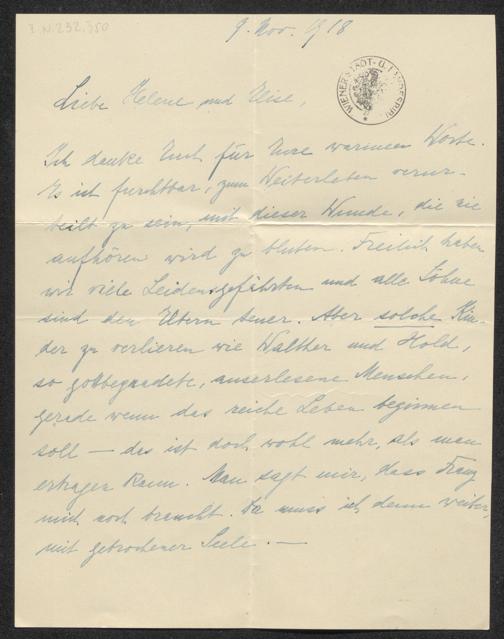 I.N. 232.350
9. Nov. 1918
WIENER STADT- U. LANDESBIBL.
Liebe Helene und Elise,
Ich danke Euch für Eure warmen Worte.
Es ist furchtbar, zum Weiterleben verur-
teilt zu sein, mit dieser Wunde, die nie
aufhören wird zu bluten. Freilich haben
wir viele Leidensgefährten und alle Söhne
sind den Eltern teuer. Aber solche Kin-
der zu verlieren wie Walther und Hold,
so gottbegnadete, auserlesene Menschen,
gerade wenn das reiche Leben beginnen
soll — das ist doch wohl mehr, als man
ertragen kann. Man sagt mir, dass Franz
mich noch braucht. Da muss ich denn weiter,
mit gebrochener Seele. —